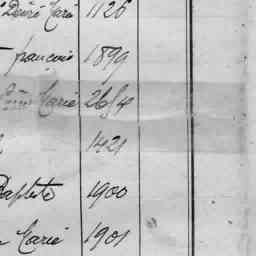 Désiré Marie 1126
françois 1899
Marie 2654
1421
Baptiste 1900
Marie 1901